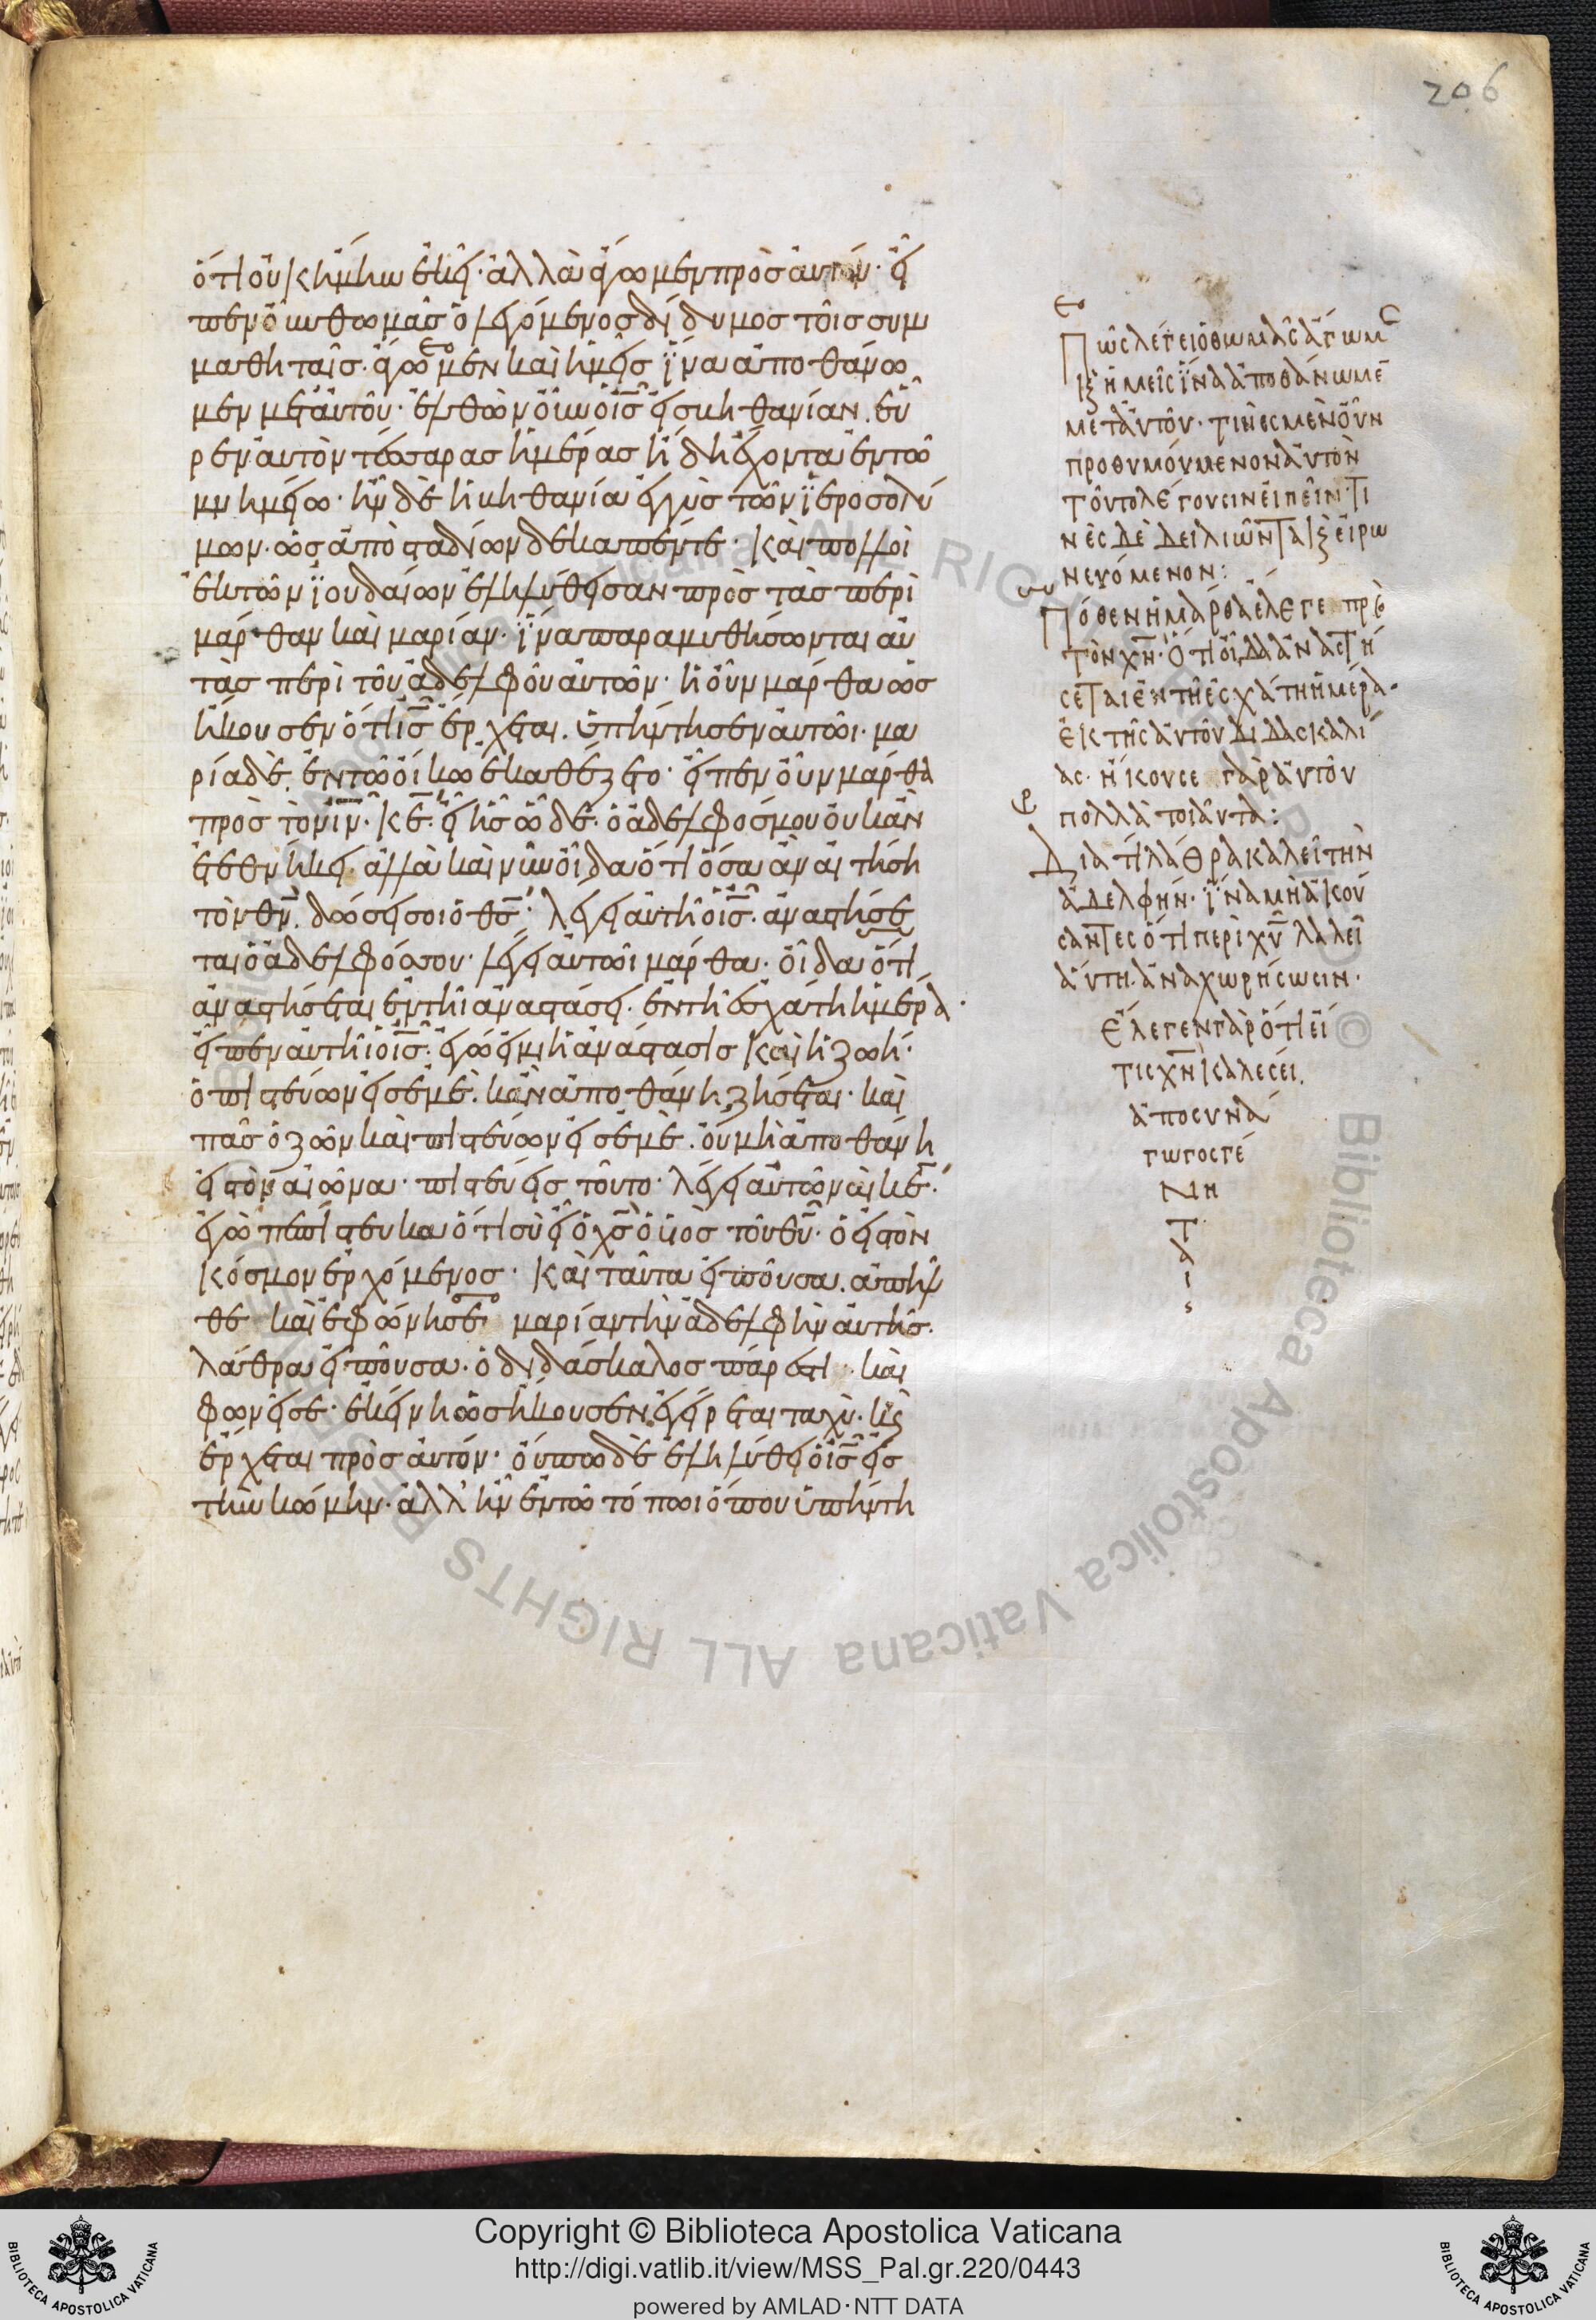 206
ὅτι οὐκ ἤμην ἐκεῖ· ἀλλὰ ἄγωμεν πρὸς αὐτόν· εἶ
πεν οὖν θωμᾶς ὁ λεγόμενος δίδυμος τοῖς συμ
μαθηταῖς· ἄγωμεν καὶ ἡμεῖς ἵνα ἀποθάνω
μεν μετ' αὐτοῦ· ἐλθὼν οὖν ὁ ις εἰς βηθανίαν. εὗ
ρεν αὐτὸν τέσσαρας ἡμέρας ἤδη ἔχοντα ἐν τῶ
μνημείω· ἦν δὲ ἡ βηθανία ἐγγὺς τῶν ἱεροσολύ
μων· ὡς ἀπὸ σταδίων δεκαπέντε· καὶ πολλοὶ
ἐκ τῶν ἰουδαίων ἐληλύθεισαν πρὸς τὰς περὶ
μάρθαν καὶ μαρίαν· ἵνα παραμυθήσωνται αὐ
τὰς περὶ τοῦ ἀδελφοῦ αὐτῶν· ἡ οὖν μάρθα ὡς
ἤκουσεν ὅτι ις ἔρχεται. ὑπήντησεν αὐτῶι· μα
ρία δὲ ἐν τῶ οἴκω ἐκαθέζετο· εἶπεν οὖν μάρθα
πρὸς τὸν ιν· κε· εἰ ἦς ὧδε· ὁ ἀδελφός μου οὐκ ἂν
ἐτεθνήκει. ἀλλὰ καὶ νῦν οἶδα ὅτι ὅσα ἂν αἰτήση
τὸν θν. δώσει σοι ὁ θς· λέγει αὐτῆ ὁ ις· ἀναστήσε
ται ὁ ἀδελφός σου· λέγει αὐτῶι μάρθα· οἶδα ὅτι
ἀναστήσεται ἐν τῆι ἀναστάσει· ἐν τῆ ἐσχάτη ἡμέρα·
εἶπεν αὐτῆι ὁ ις· ἐγώ εἰμι ἡ ἀνάστασις καὶ ἡ ζωή·
ὁ πιστεύων εἰς ἐμὲ. κἂν ἀποθάνη ζήσεται· καὶ
πᾶς ὁ ζῶν καὶ πιστεύων εἰς ἐμὲ. οὐ μὴ ἀποθάνη
εἰς τὸν αἰῶνα· πιστεύεις τοῦτο· λέγει αὐτῶ ναὶ κε·
ἐγὼ πεπίστευκα ὅτι σὺ εἶ ὁ χς ὁ υἱὸς τοῦ θυ· ὁ εἰς τὸν
κόσμον ἐρχόμενος· καὶ ταῦτα εἰποῦσα. ἀπῆλ
θε καὶ ἐφώνησε μαρίαν τὴν ἀδελφὴν αὐτῆς·
λάθρα εἰποῦσα· ὁ διδάσκαλος πάρεστι· καὶ
φωνεῖ σε· ἐκείνη ὡς ἤκουσεν. ἐγείρεται ταχὺ· καὶ
ἔρχεται πρὸς αὐτόν· οὔπω δὲ ἐληλύθει ὁ ις εἰς
τὴν κώμην· ἀλλ' ἦν ἐν τῶ τόπωι ὅπου ὑπήντη
Πῶς λέγει ὁ θωμᾶς ἄγωμε
καὶ ἡμεῖς ἵνα ἀποθάνωμε
μετ' αὐτοῦ· τινὲς μὲν οὖν
προθυμούμενον αὐτὸν
τοῦτο λέγουσιν εἰπεῖν· τι
νὲς δὲ δειλιῶντα καὶ εἰρω
νευόμενον:
Πόθεν ἡ μάρθα ἔλεγε πρὸ
τὸν χν· ὅτι οἶδα ἀναστή
σεται ἐν τῆ ἐσχάτη ἡμέρα·
ἐκ τῆς αὐτοῦ διδασκαλί
ας· ἤκουσε γὰρ αὐτοῦ
πολλὰ τοιαῦτα:
Διατί λάθρα καλεῖ τὴν
ἀδελφήν· ἵνα μὴ ἀκού
σαντες ὅτι περὶ χυ λαλεῖ
αὕτη· ἀναχωρήσωσιν·
Ἔλεγεν γὰρ ὅτι εἴ
τις χν καλέσει.
ἀποσυνά
γωγος γέ
νη
τ
α
ι
:
Copyright © Biblioteca Apostolica Vaticana
http://digi.vatlib.it/view/MSS_Pal.gr.220/0443
powered by AMLAD·NTT DATA
BIBLIOTECA APOSTOLICA VATICANA
BIBLIOTECA APOSTOLICA VATICANA